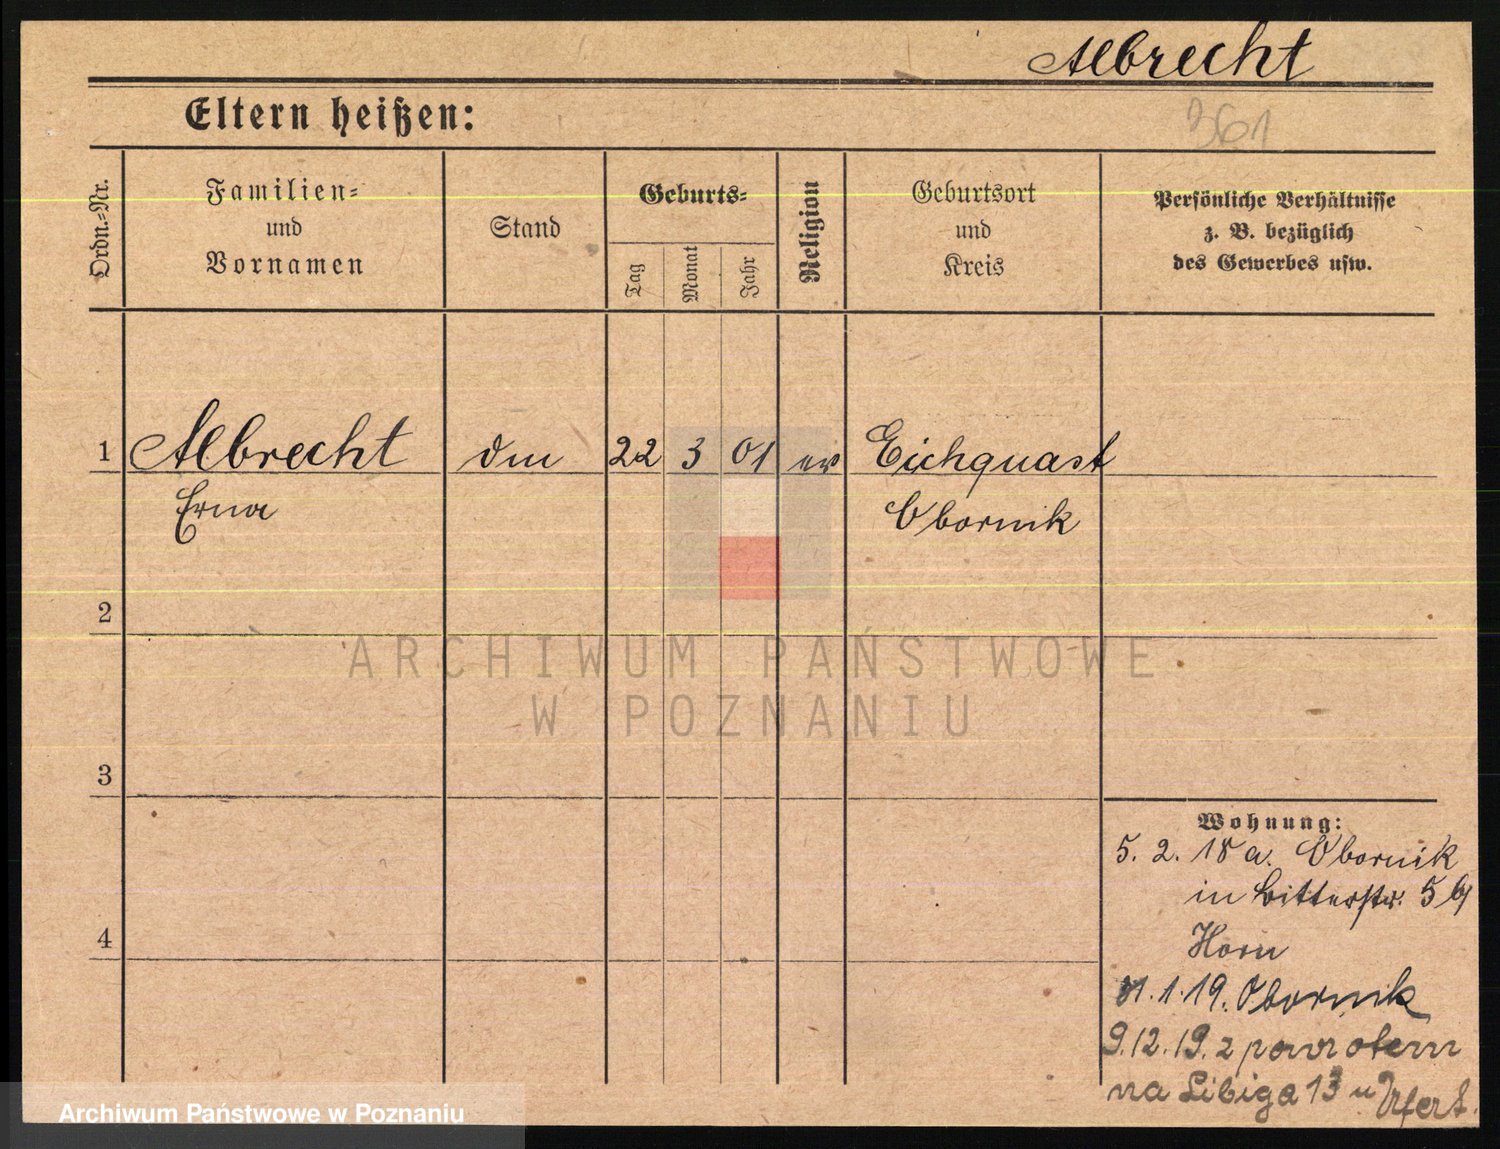 Albrecht
Eltern heißen:
361
Ordn.=Nr.
Familien=
und
Vornamen
Stand
Geburts=
Tag
Monat
Jahr
Religion
Geburtsort
und
Kreis
Persönliche Verhältnisse
z. B. bezüglich
des Gewerbes usw.
1 Albrecht dm 22 3 01 ev Eichquast
Erna Obornik
2
3
4
Wohnung:
5. 2. 18 a. Obornik
in Bitterstr. 56
Horn
1.1.19. Obornik
9.12.19. z powrotem
na Libiga 13 u
ARCHIWUM PAŃSTWOWE
W POZNANIU
Archiwum Państwowe w Poznaniu